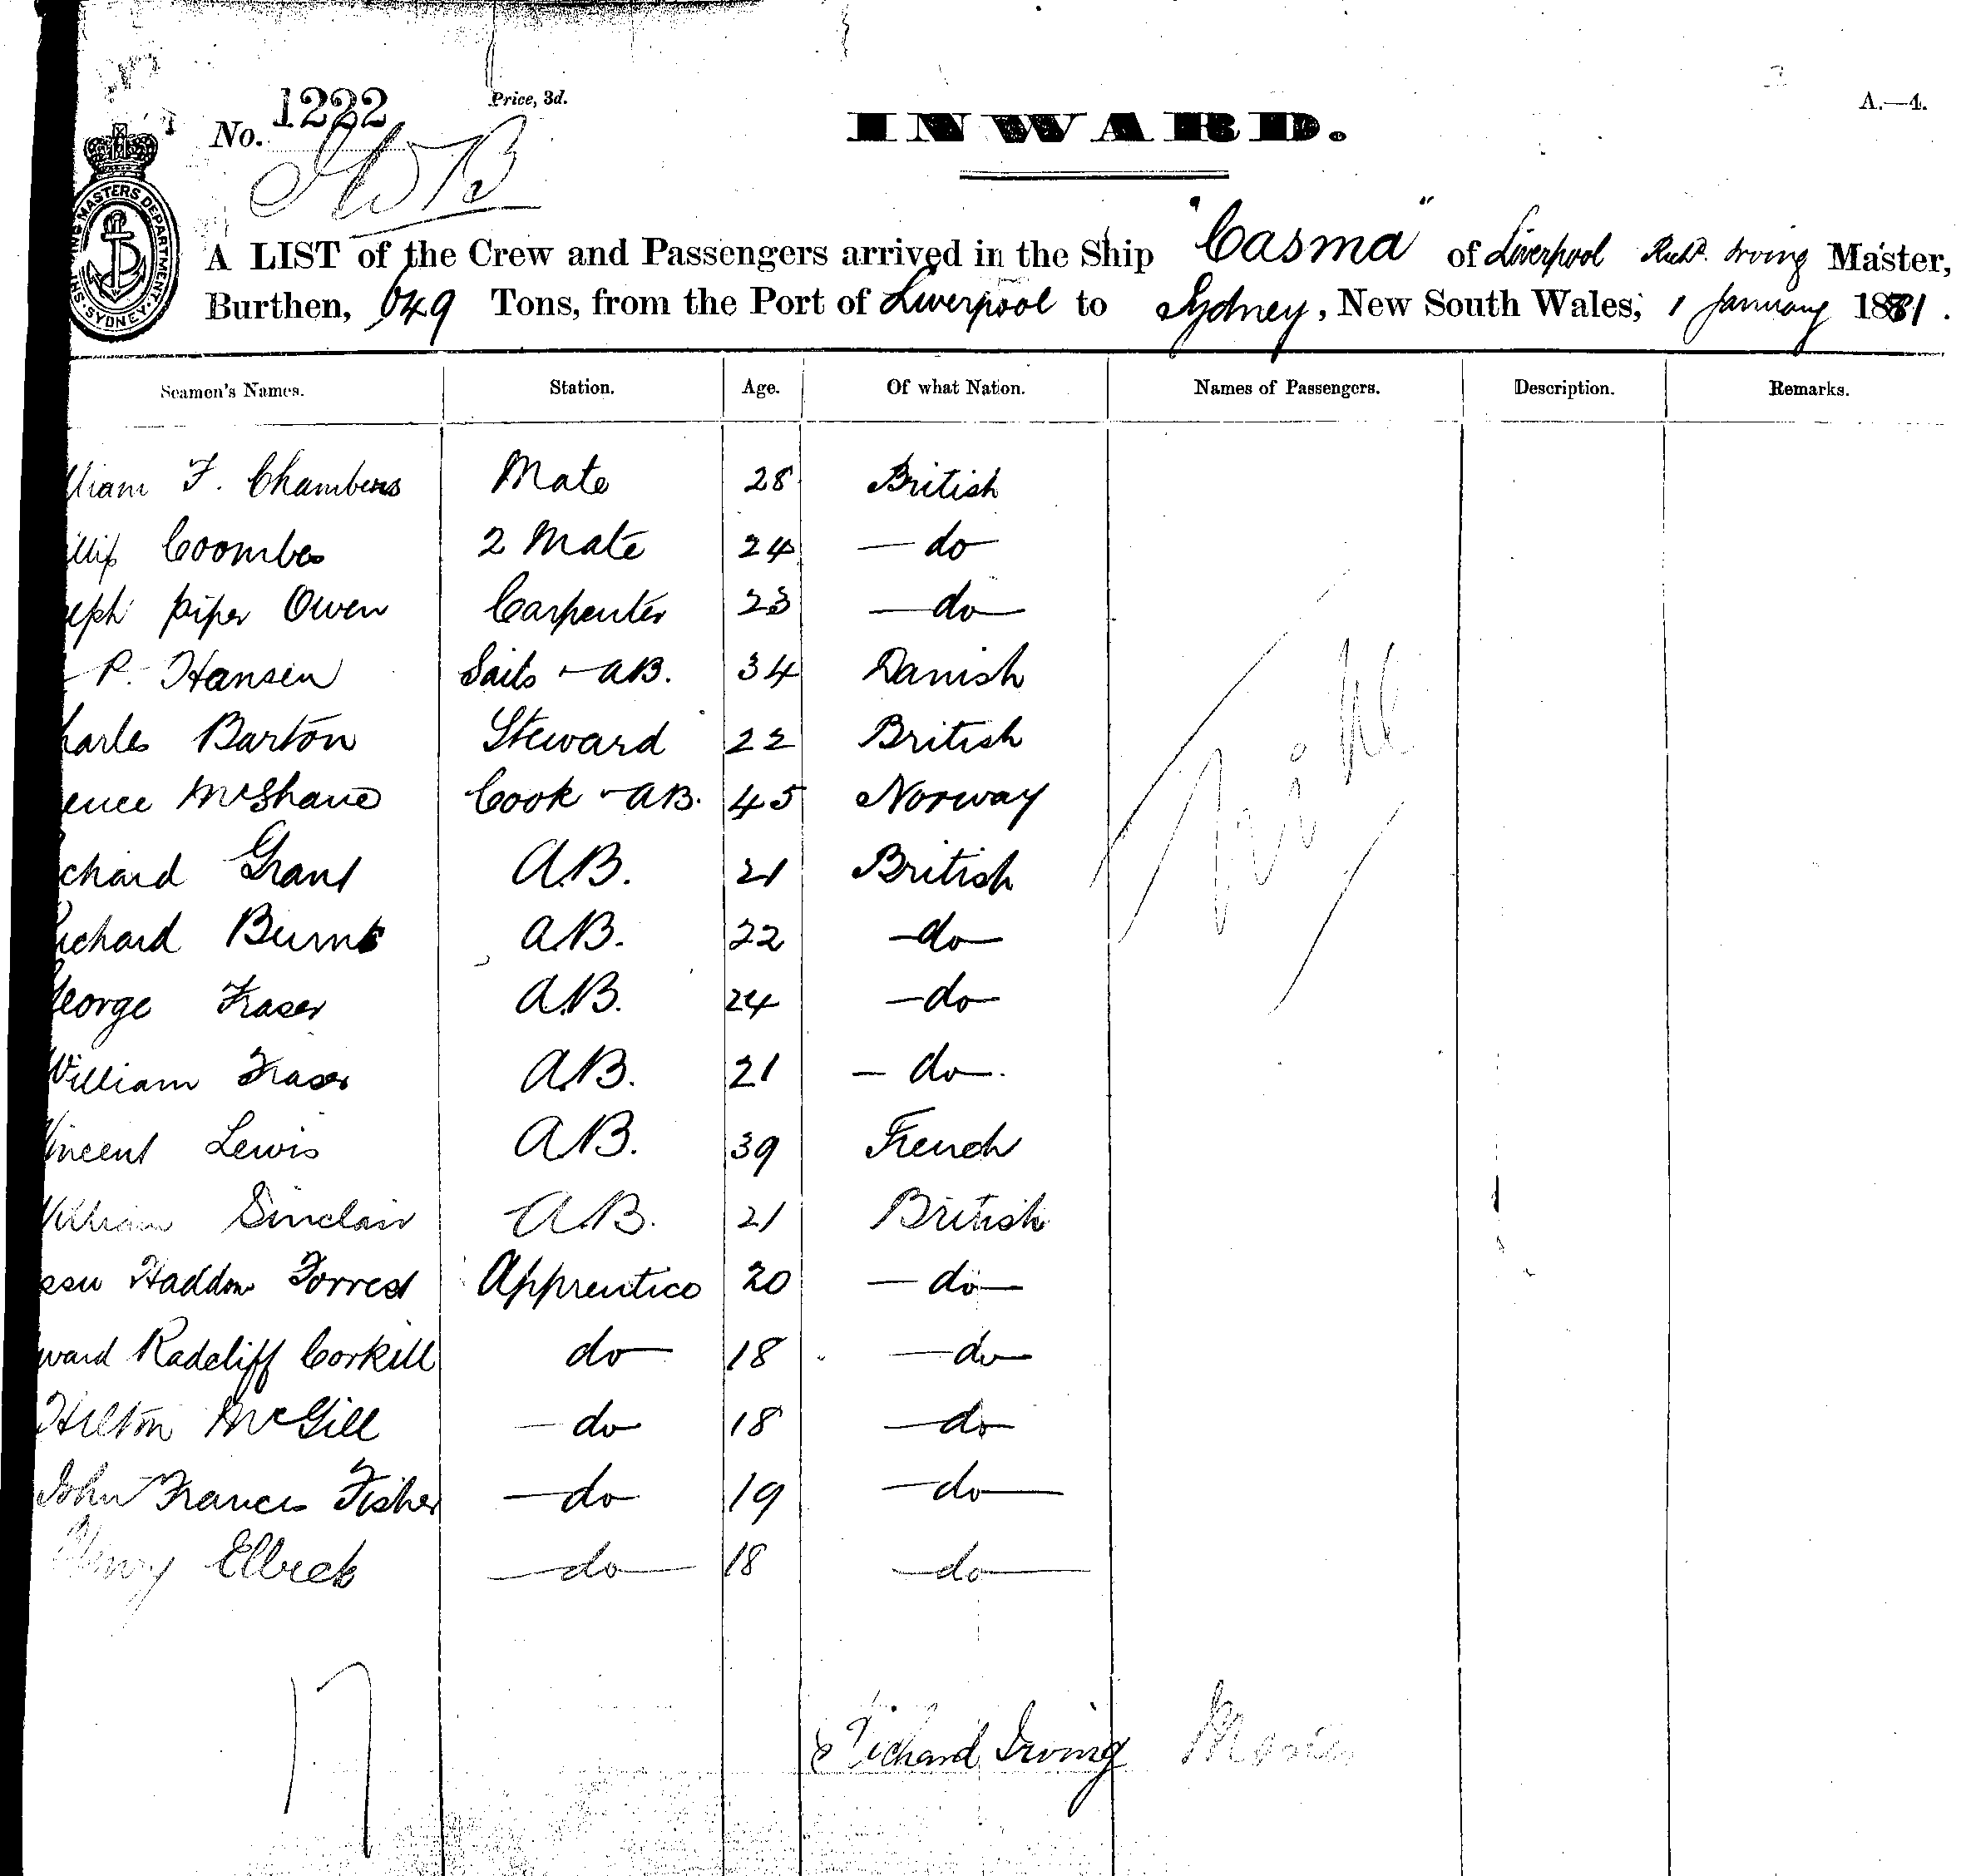 No. 1222
Price, 3d.
INWARD.
A.—4.
MASTERS DEPARTMENT. SYDNEY.
A LIST of the Crew and Passengers arrived in the Ship "Casma" of Liverpool Richd. Irving Master,
Burthen, 649 Tons, from the Port of Liverpool to Sydney, New South Wales, 1 January 1881.
Seamen's Names. Station. Age. Of what Nation. Names of Passengers. Description. Remarks.
lliam F. Chambers Mate 28 British
illip Coombes 2 Mate 24 — do
eph piper Owen Carpenter 23 — do —
P. Hansen Sails & AB. 34 Danish
harles Barton Steward 22 British
ence McShane Cook & AB. 45 Norway
chard Grant A.B. 21 British
Richard Burns A.B. 22 — do —
George Fraser A.B. 24 — do —
William Fraser A.B. 21 — do —.
Vincent Lewis A.B. 39 French
William Sinclair A.B. 21 British
Haddon Forrest Apprentice 20 — do —
ward Radcliff Corkill do — 18 — do —
Hilton McGill — do 18 — do —
John Francis Fisher — do 19 — do —
Henry Elbeck — do — 18 — do —
17
Richard Irving Master